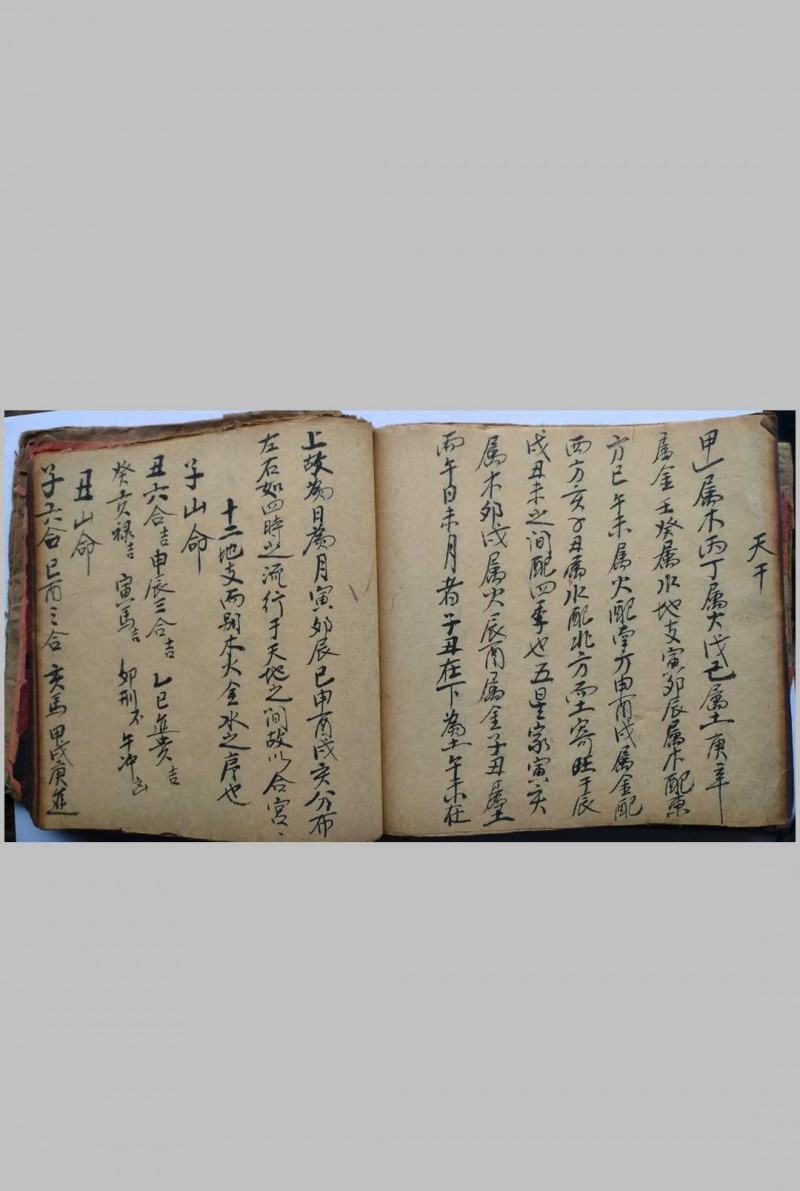 天干
甲乙属木丙丁属火戊己属土庚辛
属金壬癸属水地支寅夘辰属木配東
方巳午未属火配南方申酉戌属金配
西方亥子丑属水配北方而土寄旺于辰
戌丑未之间配四季也五星家寅亥
属木夘戌属火辰酉属金子丑属土
丙午日未月者子丑在下為土午未在
上故為日為月寅夘辰巳申酉戌亥分布
左右如四時之流行于天地之间故以合宫
十二地支而别木火金水之序也
子山命
丑六合吉申辰三合吉 乙巳進贵吉
癸亥禄吉 寅馬吉 夘刑不 午冲凶
丑山命
子六合 巳酉三合 亥馬 甲戌庚進